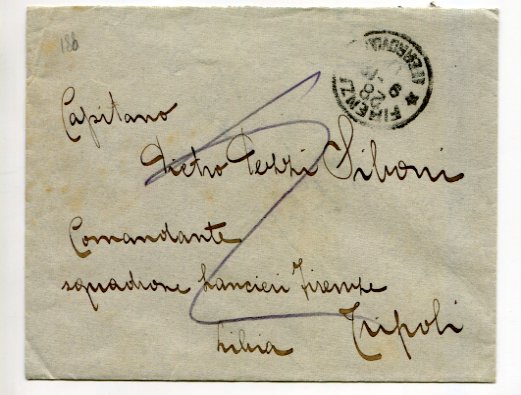 186
FIRENZE FERROVIA
28
9
Capitano
Pietro Pezzi Siboni
Comandante
squadrone Lancieri Firenze
Tripoli
Libia